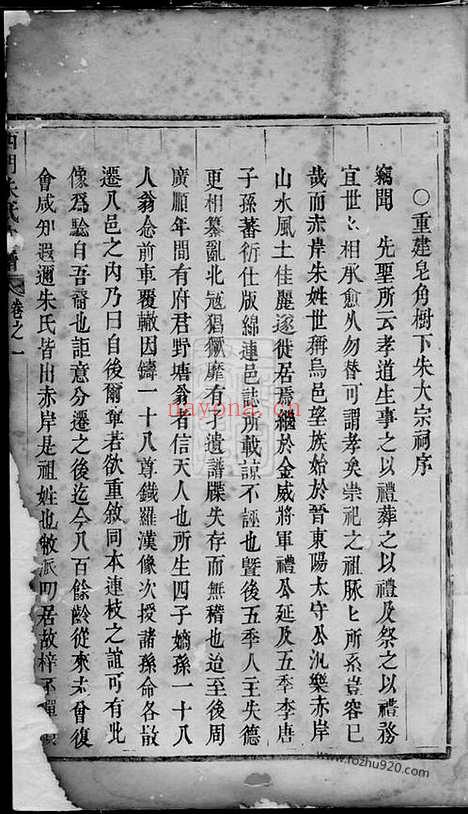 〇重建皂角樹下朱大宗祠序
竊聞　先聖所云孝道生事之以禮葬之以禮及祭之以禮務
宜世〻相承愈久勿替可謂孝矣崇祀之祖脉〻所系豈容已
哉而赤岸朱姓世稱烏邑望族始於晉東陽太守公汎樂赤岸
山水風土佳麗遂徙居焉繼於金威將軍禮公延及五季李唐
子孫蕃衍仕版綿連邑誌所載諒不誣也暨後五季八王失德
更相纂亂北寇猖獗靡有孑遺譜牒失存而無稽也迨至後周
廣順年間有府君野塘翁名信天人也所生四子嫡孫一十八
人翁念前車覆轍因鑄一十八尊鐵羅漢像次授諸孫命各散
遷八邑之內乃曰自後爾章若欲重敘同本連枝之誼可有此
像為驗自吾裔也詎意分遷之後迄今八百餘齡從來未曾復
會咸知遐邇朱氏皆出赤岸是祖姓也敝派叨居故梓不憚
朱氏
卷之一
www.nayona.cn
www.fozhu920.com